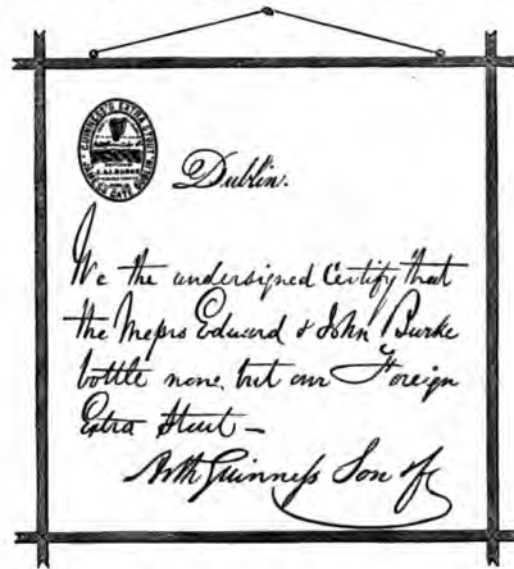 GUINNESS'S EXTRA STOUT
JAMES'S GATE DUBLIN
E & J BURKE
Dublin.
We the undersigned Certify that
the Messrs Edward & John Burke
bottle none but our Foreign
Extra Stout —
Arth Guinness Son &